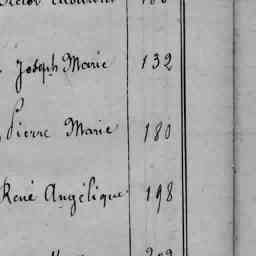 Joseph Marie 132
Pierre Marie 180
René Angélique 198